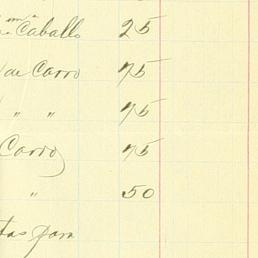 Caballo 25
de Carro 75
" " 75
Carro 75
" 50
tas para